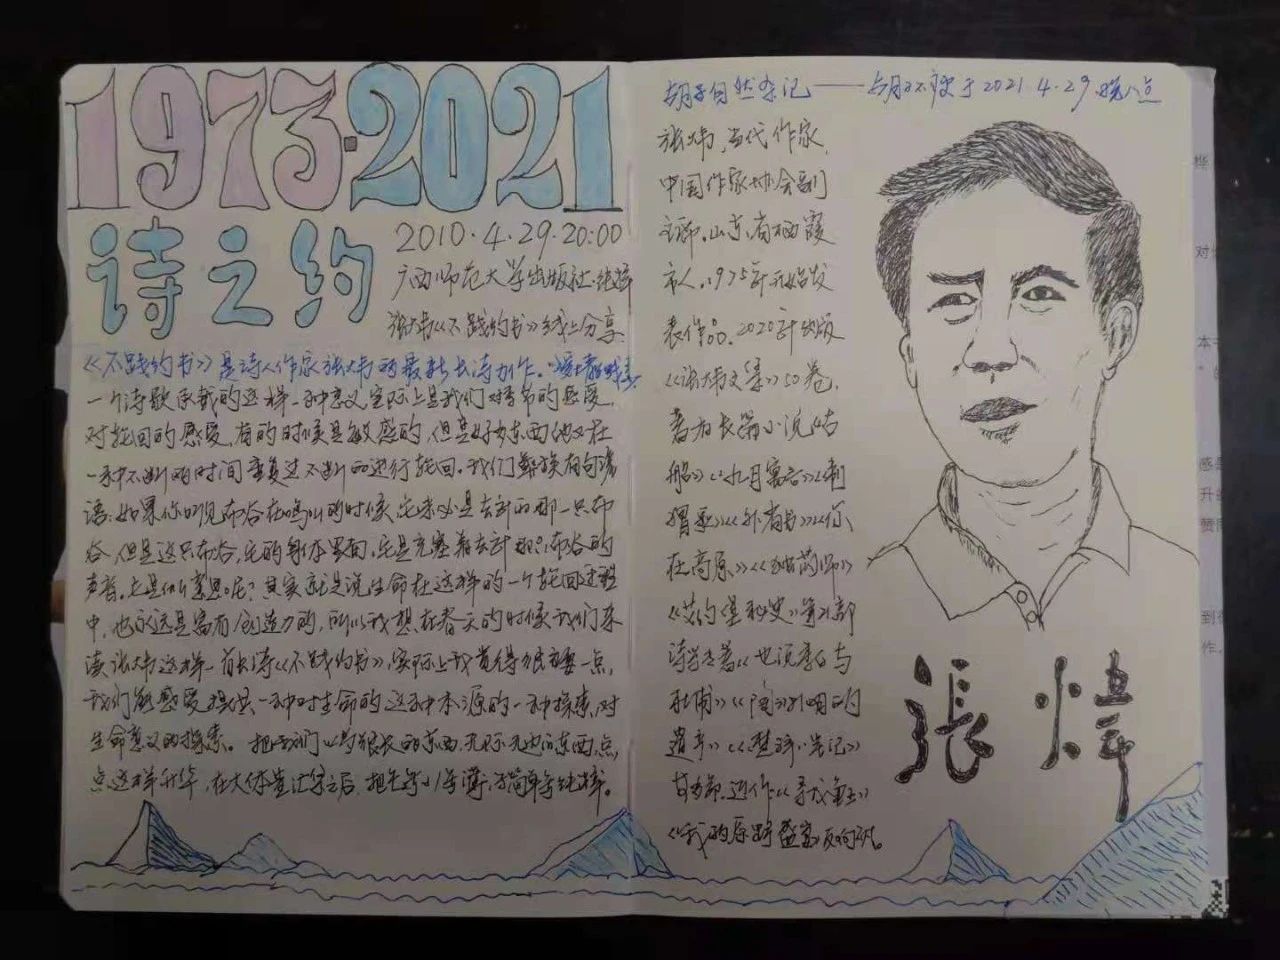 1973·2021
诗之约
2010·4·29·20:00
广西师范大学出版社·纯粹
张炜《不践约书》线上分享
《不践约书》是诗人作家张炜的最新长诗力作。
一个诗歌承载的这样一种意义实际上是我们对季节的感受,
对轮回的感受,有的时候是敏感的,但是好多东西他又在
一种不断的时间重复过不断的进行轮回。我们彝族有句谚
语:如果你听见布谷在鸣叫的时候,它未必是去年的那一只布
谷,但是这只布谷,它的身体里面,它是充塞着去年那只布谷的
声音,它是什么意思呢?其实就是说生命在这样的一个轮回过程
中,也永远是富有创造力的,所以我想在春天的时候我们来
读张炜这样一首长诗《不践约书》,实际上我觉得很重要一点,
我们能感受
一种对生命的这种本源的一种探索,对
生命意义的探索。把
很长的东西,无际无边的东西,一点
点这样升华,在大体量
之后,把
纯粹。
胡子自然笔记——
于2021.4.29.晚八点
张炜,当代作家,
中国作家协会副
主席。山东省栖霞
市人。1975年开始发
表作品。2020年出版
《张炜文集》50卷,
著有长篇小说《古
船》《九月寓言》《刺
猬歌》《外省书》《你
在高原》《独药师》
《艾约堡秘史》等21部
诗学专著《也说李白与
杜甫》《陶渊明的
遗产》《楚辞笔记》
等多部,近作《寻找鱼王》
《我的原野盛宴》反响
張煒